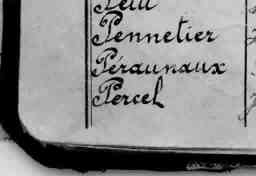 Pennetier
Péraunaux
Percel